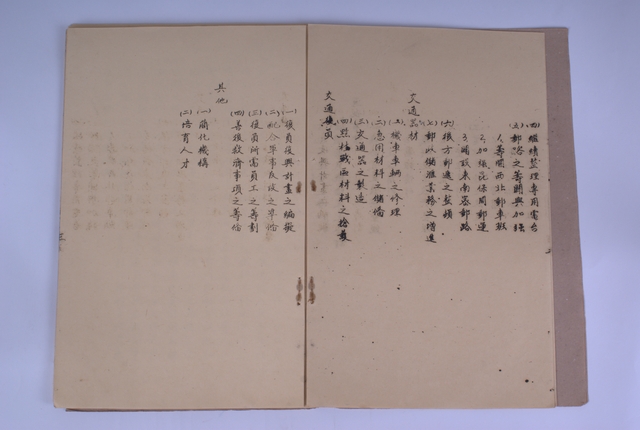 (四)繼續整理專用電台
(五)郵路之籌開與加強
1.籌開西北郵車班
2.加強昆保間郵運
3.開闢東南各郵路
(六)後方郵遞之整頓
(七)郵政儲匯業務之增進
交通器材
(一)機車車輛之修理
(二)急用材料之儲備
(三)交通器之製造
(四)點檢戰區材料之搶護
交通復員
(一)復員復興計畫之編擬
(二)配合軍事反攻之準備
(三)復員所需員工之籌劃
(四)善後救濟事項之籌備
其他
(一)簡化機構
(二)培育人才
三